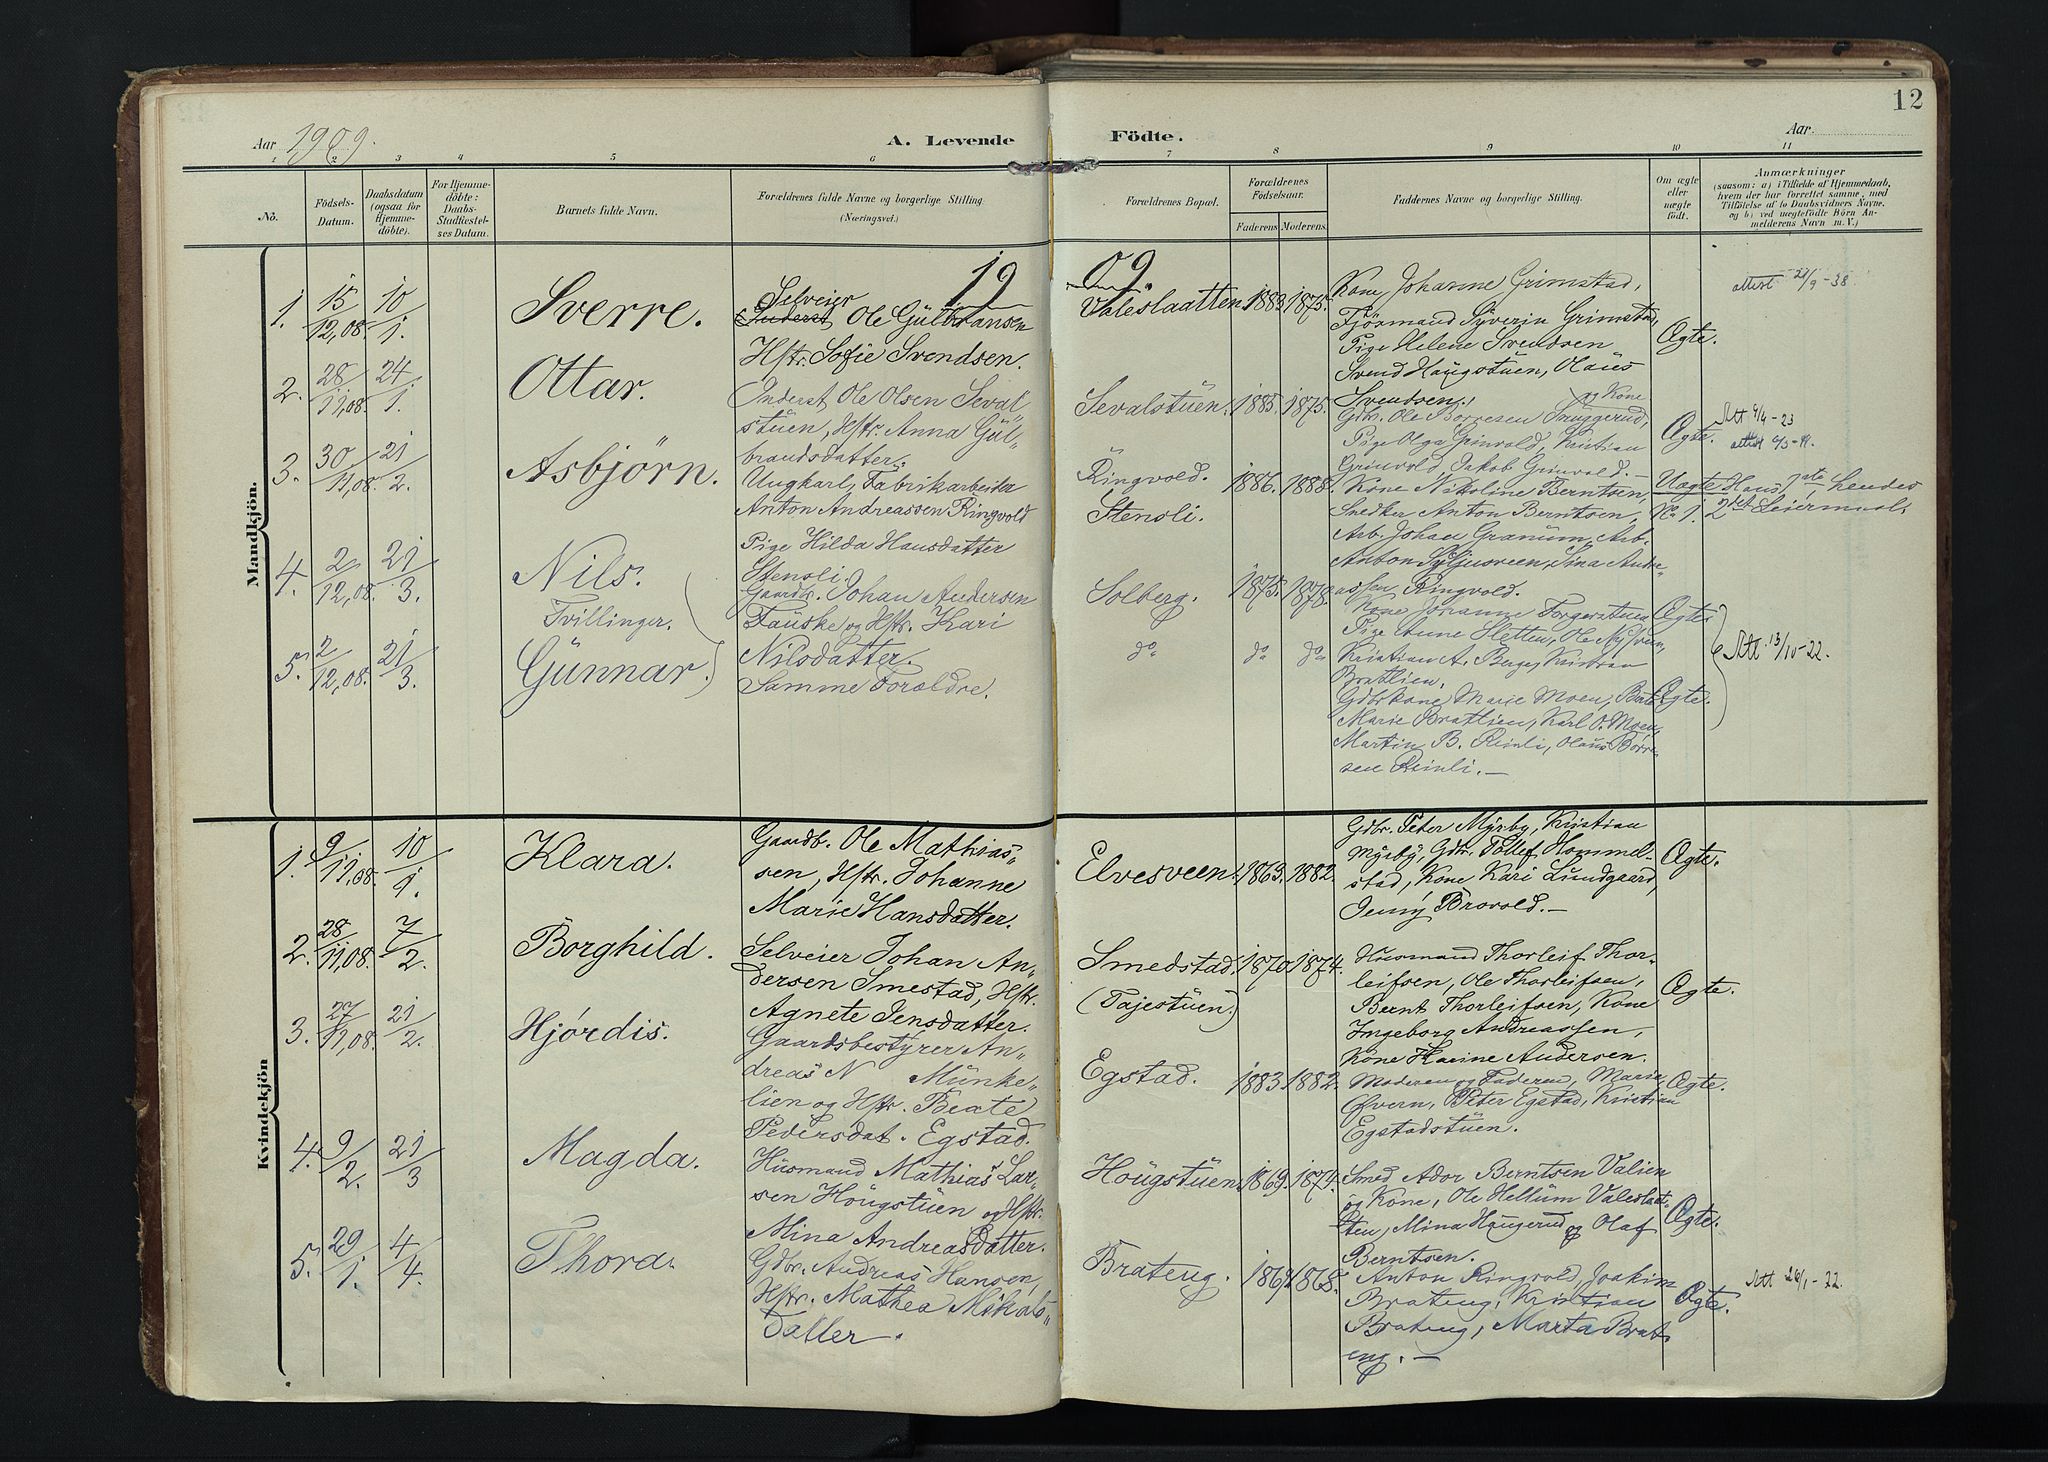 12
Aar 1909.
A. Levende
Födte.
Aar.
1 2 3 4 5 6 7 8 9 10 11
No.
Födsels-
Datum.
Daabsdatum
(ogsaa for
Hjemme-
döbte).
For Hjemme-
döbte:
Daabs-
Stadfæstel-
ses Datum.
Barnets fulde Navn.
Forældrenes fulde Navne og borgerlige Stilling
(Næringsvei.)
Forældrenes Bopæl.
Forældrenes
Födselsaar.
Faderens Moderens.
Faddernes Navne og borgerlige Stilling.
Om ægte
eller
uægte
födt.
Anmærkninger
(saasom: a) i Tilfælde af Hjemmedaab,
hvem der har forrettet samme, med
Tilföielse af to Daabsvidners Navne,
og b) ved uægtefödte Börn An-
melderens Navn m. V.)
19 09.
Mandkjön.
1. 15/12,08. 10/1. Sverre.
Selveier
Inderst Ole Gulbransen
Hstr. Sofie Svendsen.
Valeslaatten. 1883. 1875.
Kone Johanne Grimstad,
Fjørmand Syverin Grimstad,
Pige Helene Svendsen
Svend Haugstuen, Olaus
Svendsen.
Ægte.
attest 29/9-38.
2. 28/11,08. 24/1. Ottar.
Inderst Ole Olsen Seval-
stuen, Hstr. Anna Gul-
brandsdatter.
Sevalstuen. 1885. 1875.
og Kone
Gdbr. Ole Borresen Snuggerud,
Pige Olga Grinvold, Kristian
Grinvold, Jakob Grinvold. —
Ægte.
Att 4/4-23
3. 30/11,08. 21/2. Asbjørn.
Ungkarl, Fabrikarbeider
Anton Andreassen Ringvold
Pige Hilda Hansdatter
Stensli.
Ringvold.
Stensli.
1886. 1888.
Kone Nikoline Berntsen,
Snedker Anton Berntsen,
Arb. Johan Granum, Arb.
Anton Syljusveen, Lina Andre-
assen Ringvold.
Uægte
No 1.
Hans 1ste hendes
2det Leiermaal.
4. 2/12,08. 21/3. Nils.
Tvillinger.
Gaardbr. Johan Andersen
Fauske og Hstr. Kari
Nilsdatter.
Solberg. 1875. 1878.
Kone Johanne
Pige Anne Sletten, Ole Nysveen,
Kristian A. Berge, Kristian
Bratlien.
Ægte
5. 2/12,08. 21/3. Gunnar.
Samme Forældre.
do do do
Gdbrkone Marie Moen, Berte
Marie Bratlien, Karl O. Moen,
Martin B. Reinli, Olaus Borre-
sen Reinli. —
Ægte.
Att. 13/10-22.
Kvindekjön
1. 9/11,08. 10/1. Klara.
Gaardb. Ole Mathias-
sen, Hstr. Johanne
Marie Hansdatter.
Elvesveen. 1863. 1882.
Gdbr. Peter Myrby, Kristian
Myrby, Gdbr. Tollef Hommel-
stad, Kone Kari Lundgaard,
Jenny Brovold. —
Ægte.
2. 28/11,08. 7/2. Borghild.
Selveier Johan An-
dersen Smestad, Hstr.
Agnete Jensdatter.
Smedstad.
(Tajestuen.)
1870. 1874.
Husmand Thorleif Thor-
leifsen, Ole Thorleifsen,
Bernt Thorleifsen, Kone
Ingeborg Andreassen,
Kone Karine Andersen.
Ægte.
3. 27/11,08. 21/2. Hjørdis.
Gaardsbestyrer An-
dreas N Munke-
lien og Hstr. Beate
Pedersdat. Egstad.
Egstad. 1883. 1882.
Moderen og Faderen, Marie
Øfvern, Peter Egstad, Kristian
Egstadstuen.
Ægte.
4. 9/2. 21/3 Magda.
Husmand Mathias Lar-
sen Hougstuen og Hstr.
Mina Andreasdatter.
Hougstuen. 1869. 1874.
Smed Ador Berntsen Valien
og Kone, Ole Hellum Valeslaat-
ten, Mina Haugerud og Olaf
Berntsen.
Ægte.
5. 29/1. 4/4. Thora.
Gdbr. Andreas Hansen,
Hstr. Mathea Mikals-
datter.
Brateng. 1868.
Anton Ringvold, Joakim
Brateng, Kristian
Brateng, Marta Brat-
eng. —
Ægte.
Att 26/1-22.